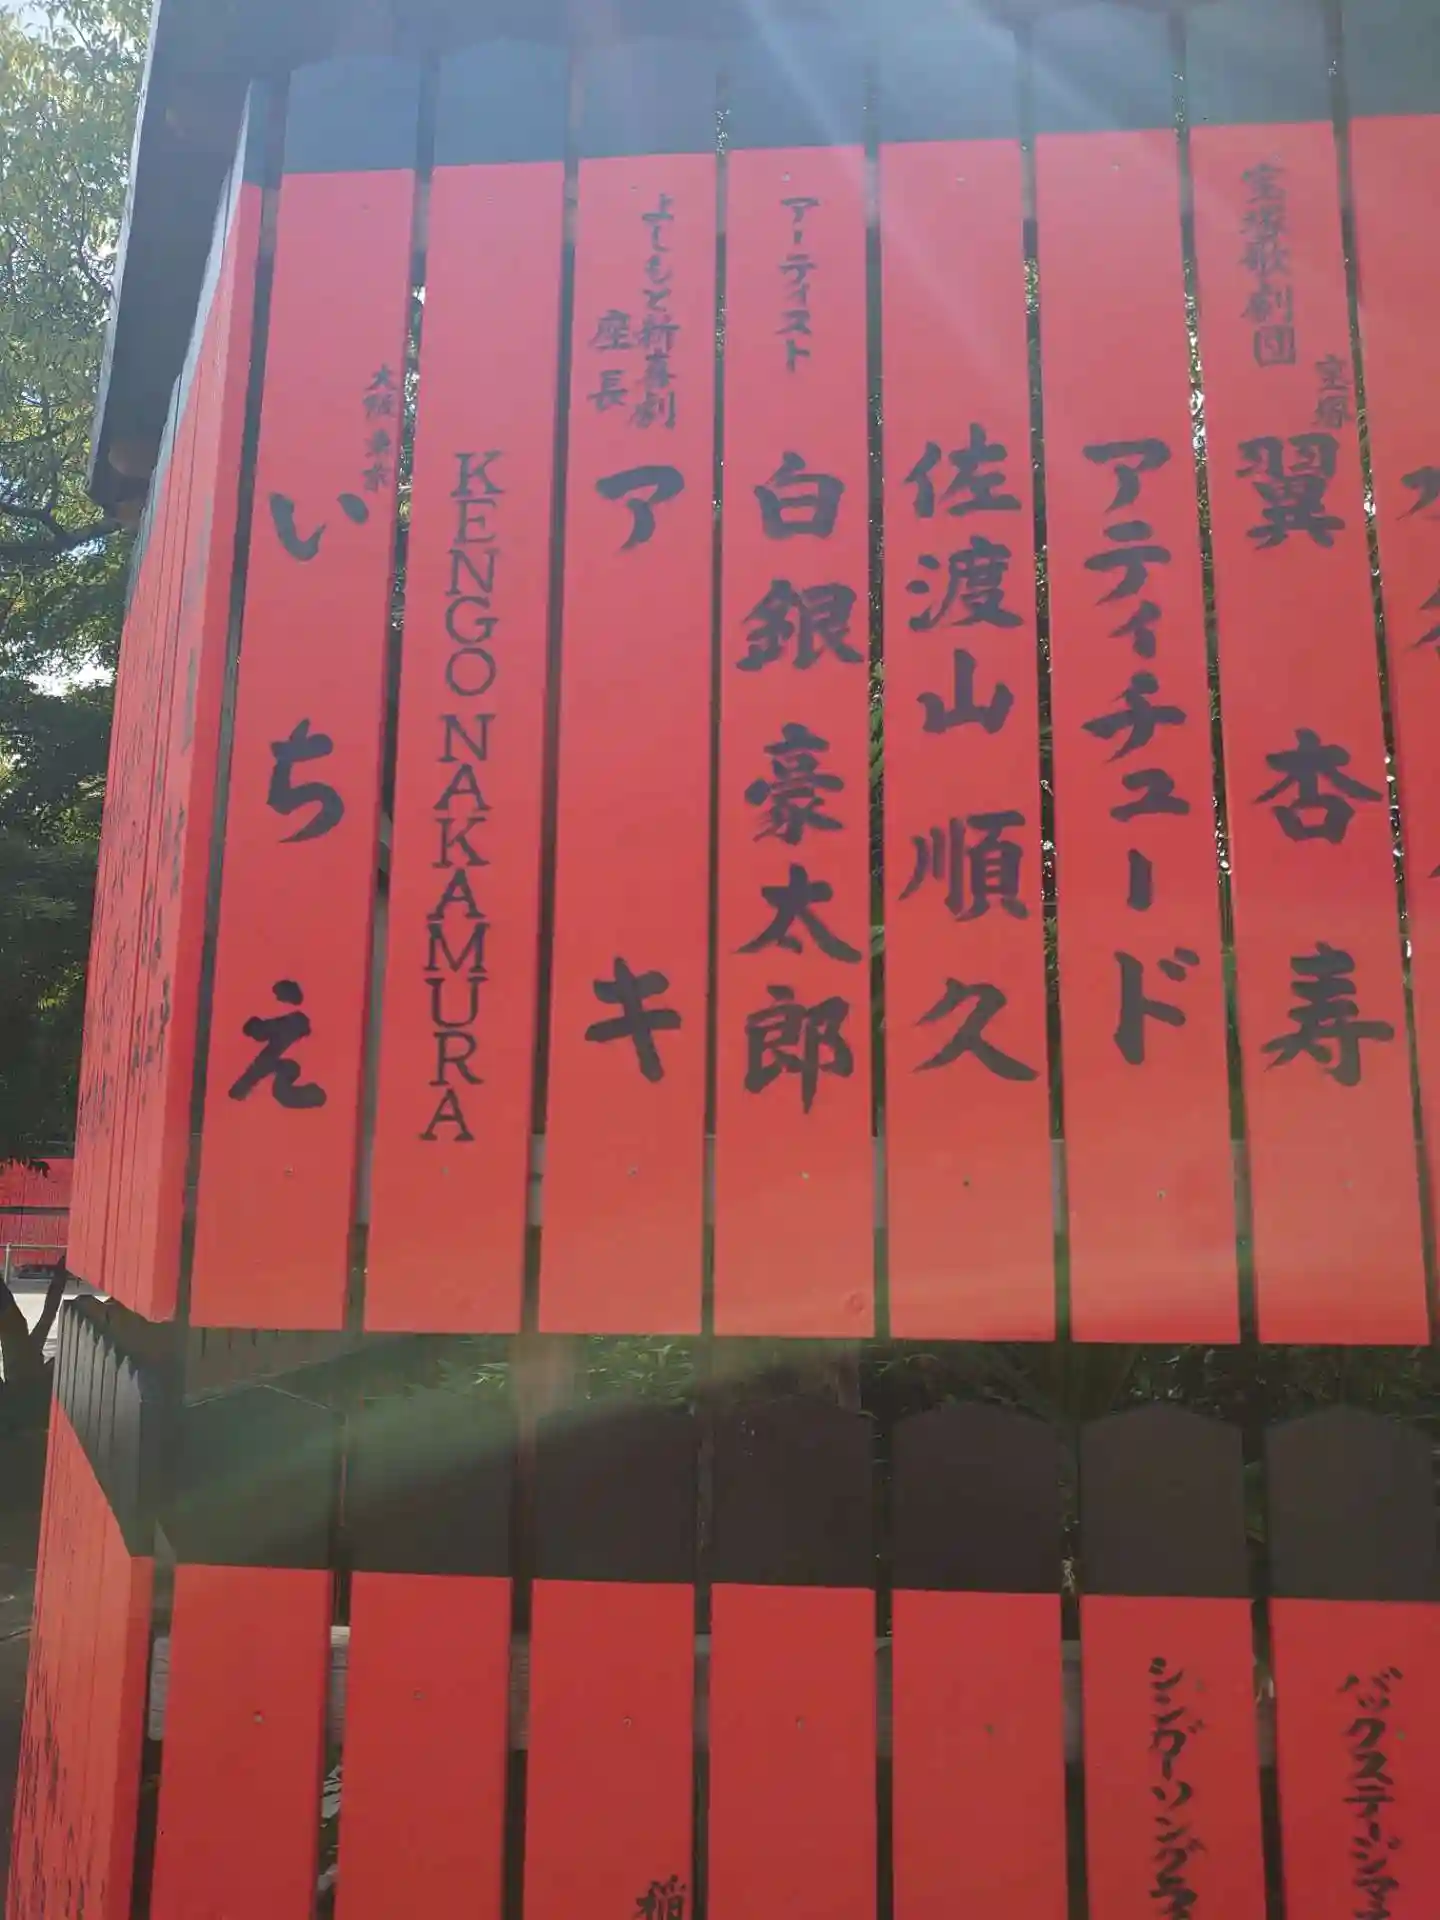 宝塚歌劇団
宝塚
翼 杏寿
アティチュード
佐渡山 順久
アーティスト
白銀 豪太郎
よしもと新喜劇
座長
アキ
KENGO NAKAMURA
大阪 東京
いちえ
バックステージマネ
シンガーソングラ
稲